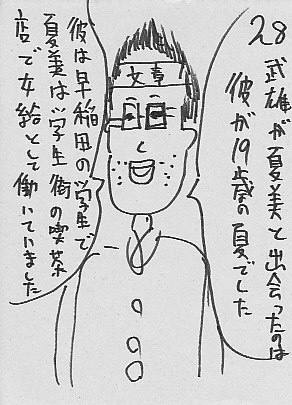 28
武雄が夏美と出会ったのは
彼が19歳の夏でした
文章
彼は早稲田の学生で
夏美は学生街の喫茶
店で女給として働いていました